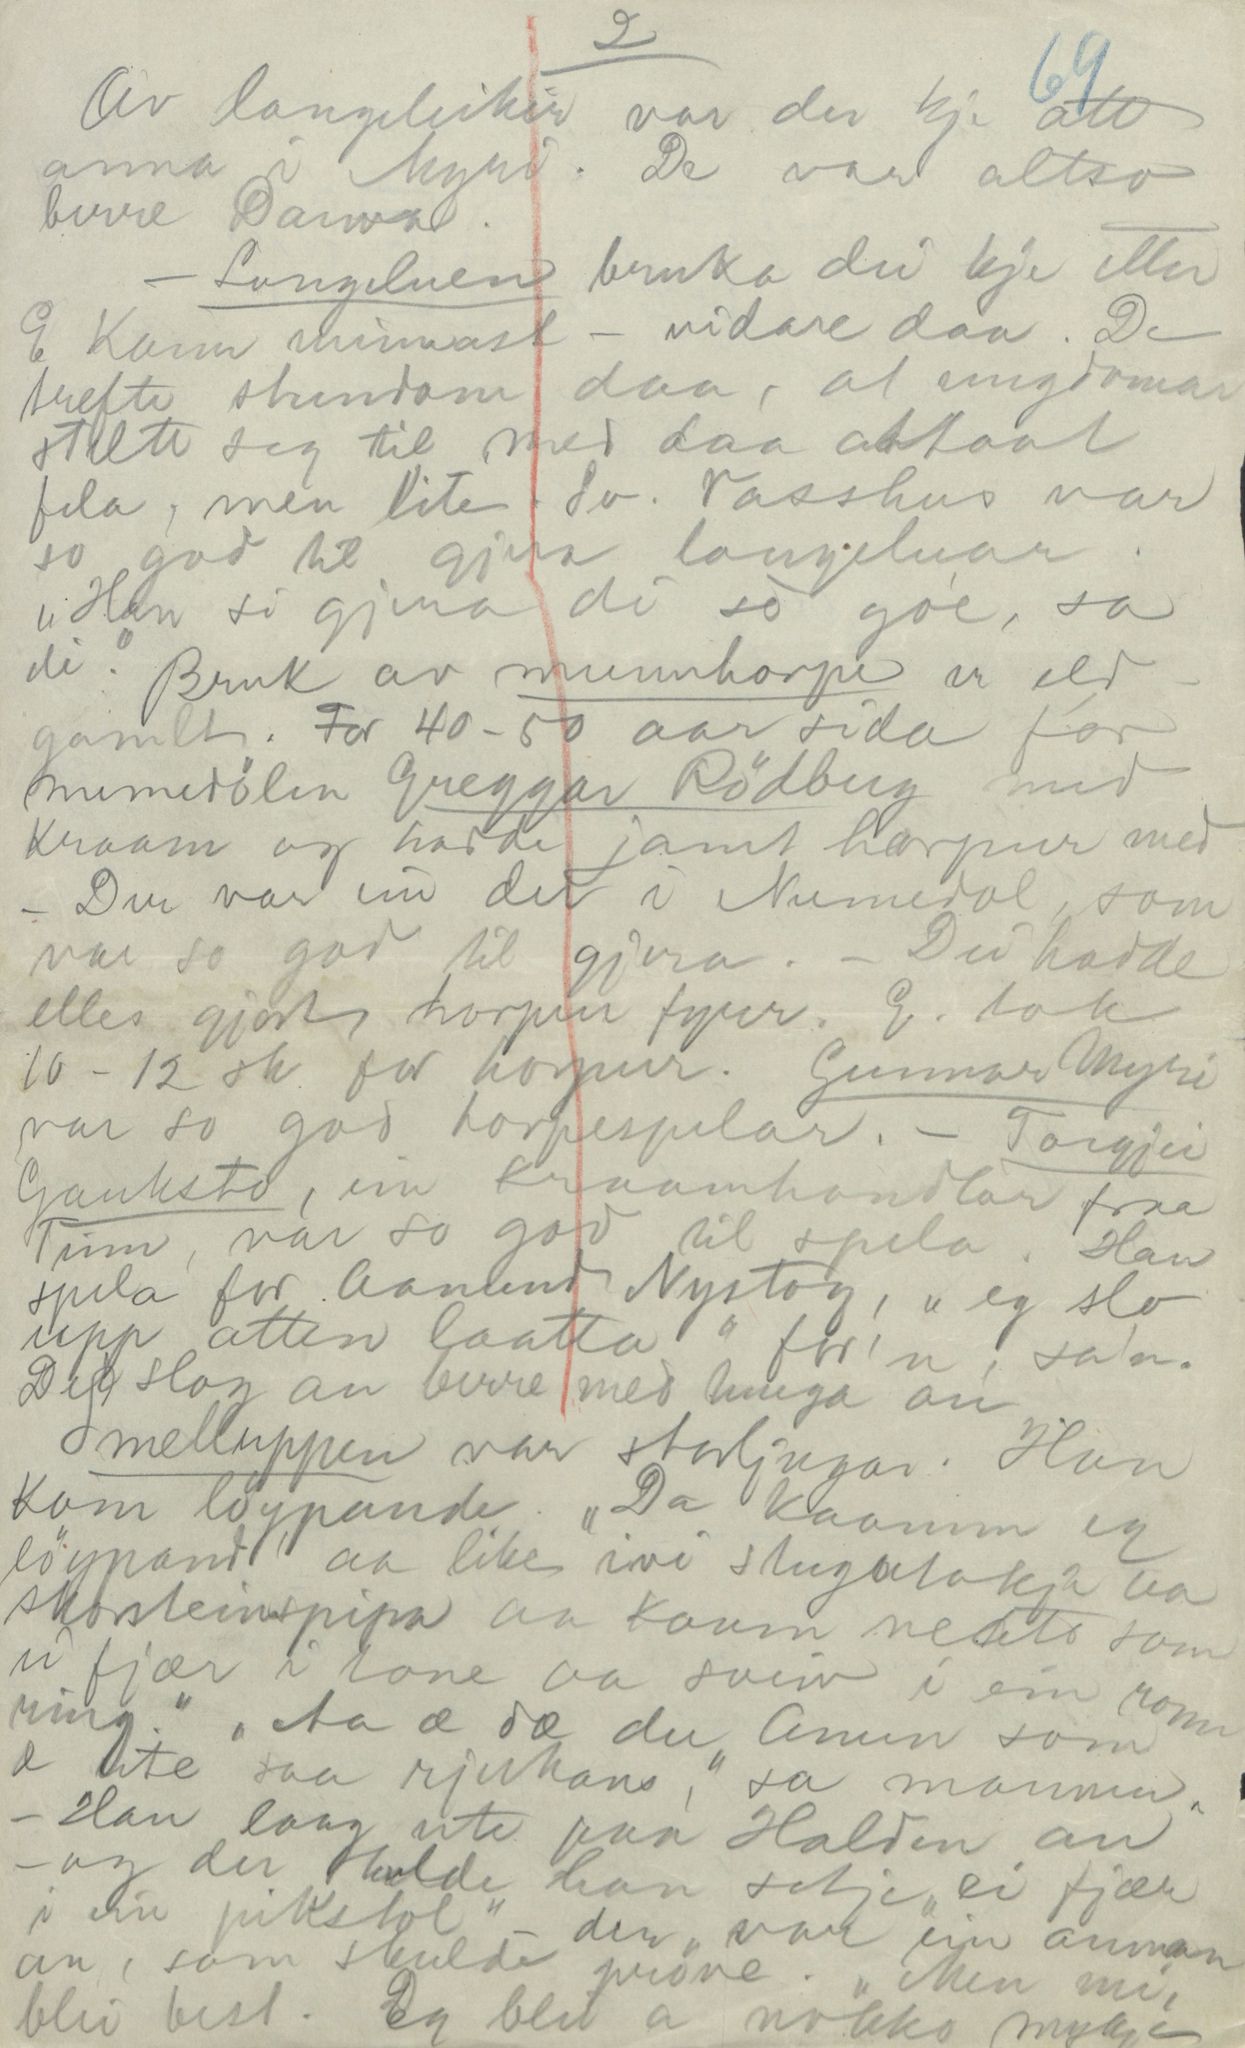 2
69
Av langeleikir var der kje att
anna i Myri. De var altso
berre Danwa.
- Langeluen bruka dei kje etter
E Kann minnast - vidare daa. De
trefte stundom daa, at ungdomar
stellte seg til med daa attaat
fela, men lite. Sv. Vasshus var
so god til gjera langeluar.
"Han si gjera di so goe, sa
di." Bruk av munnharpe er eld-
gamlt. For 40-50 aar sida for
numedölen Greggar Rödberg med
Kraam og hadde jamt harpur med
- Der var ein der i Numedal, som
var so god til gjera. - Dei hadde
elles gjort harpur fyrr. G. tok
10-12 sk for harpur. Gunnar Myri
var so god harpespelar. - Torgjei
Gauksto, ein Kraamhandlar fraa
Tinn, var so god til spela. Han
spela for Aanund Nystog, "eg slo
upp atten laatta" for'n, sa'n.
Dei slog an berre med tunga au
Smelluppen var storljugar. Han
Kom löypande. "Da kaamm eg
löypand' aa like ivi stugutakje aa
skorsteinspipa aa kaam ned att som
ei fjær i tone aa sveiv i ein romm
ring." "Aa æ dæ du, Anun som
æ ute saa rjukans," sa mannen.
- Han laag ute paa Halden au
- og der skulde han setje "ei fjær
i ein pikstol" - der var ein annan
au, som skulde pröve. "Men mi,
blei best. Eg blei a nokko mykje